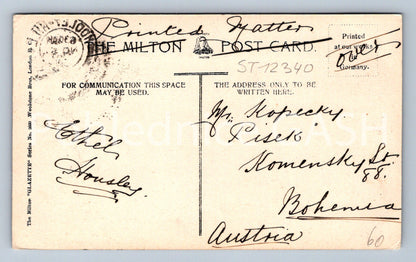 Printed Matter
THE MILTON POST CARD.
Printed
at our works
Germany.
ST-12340
FOR COMMUNICATION THIS SPACE
MAY BE USED.
THE ADDRESS ONLY TO BE
WRITTEN HERE.
Mr. Kopecky
Pisek
Komensky St.
88.
Bohemia
Austria
Ethel
Housley
60
The Milton "GLAZETTE" Series No.
Woodstone Bros., London E.C.